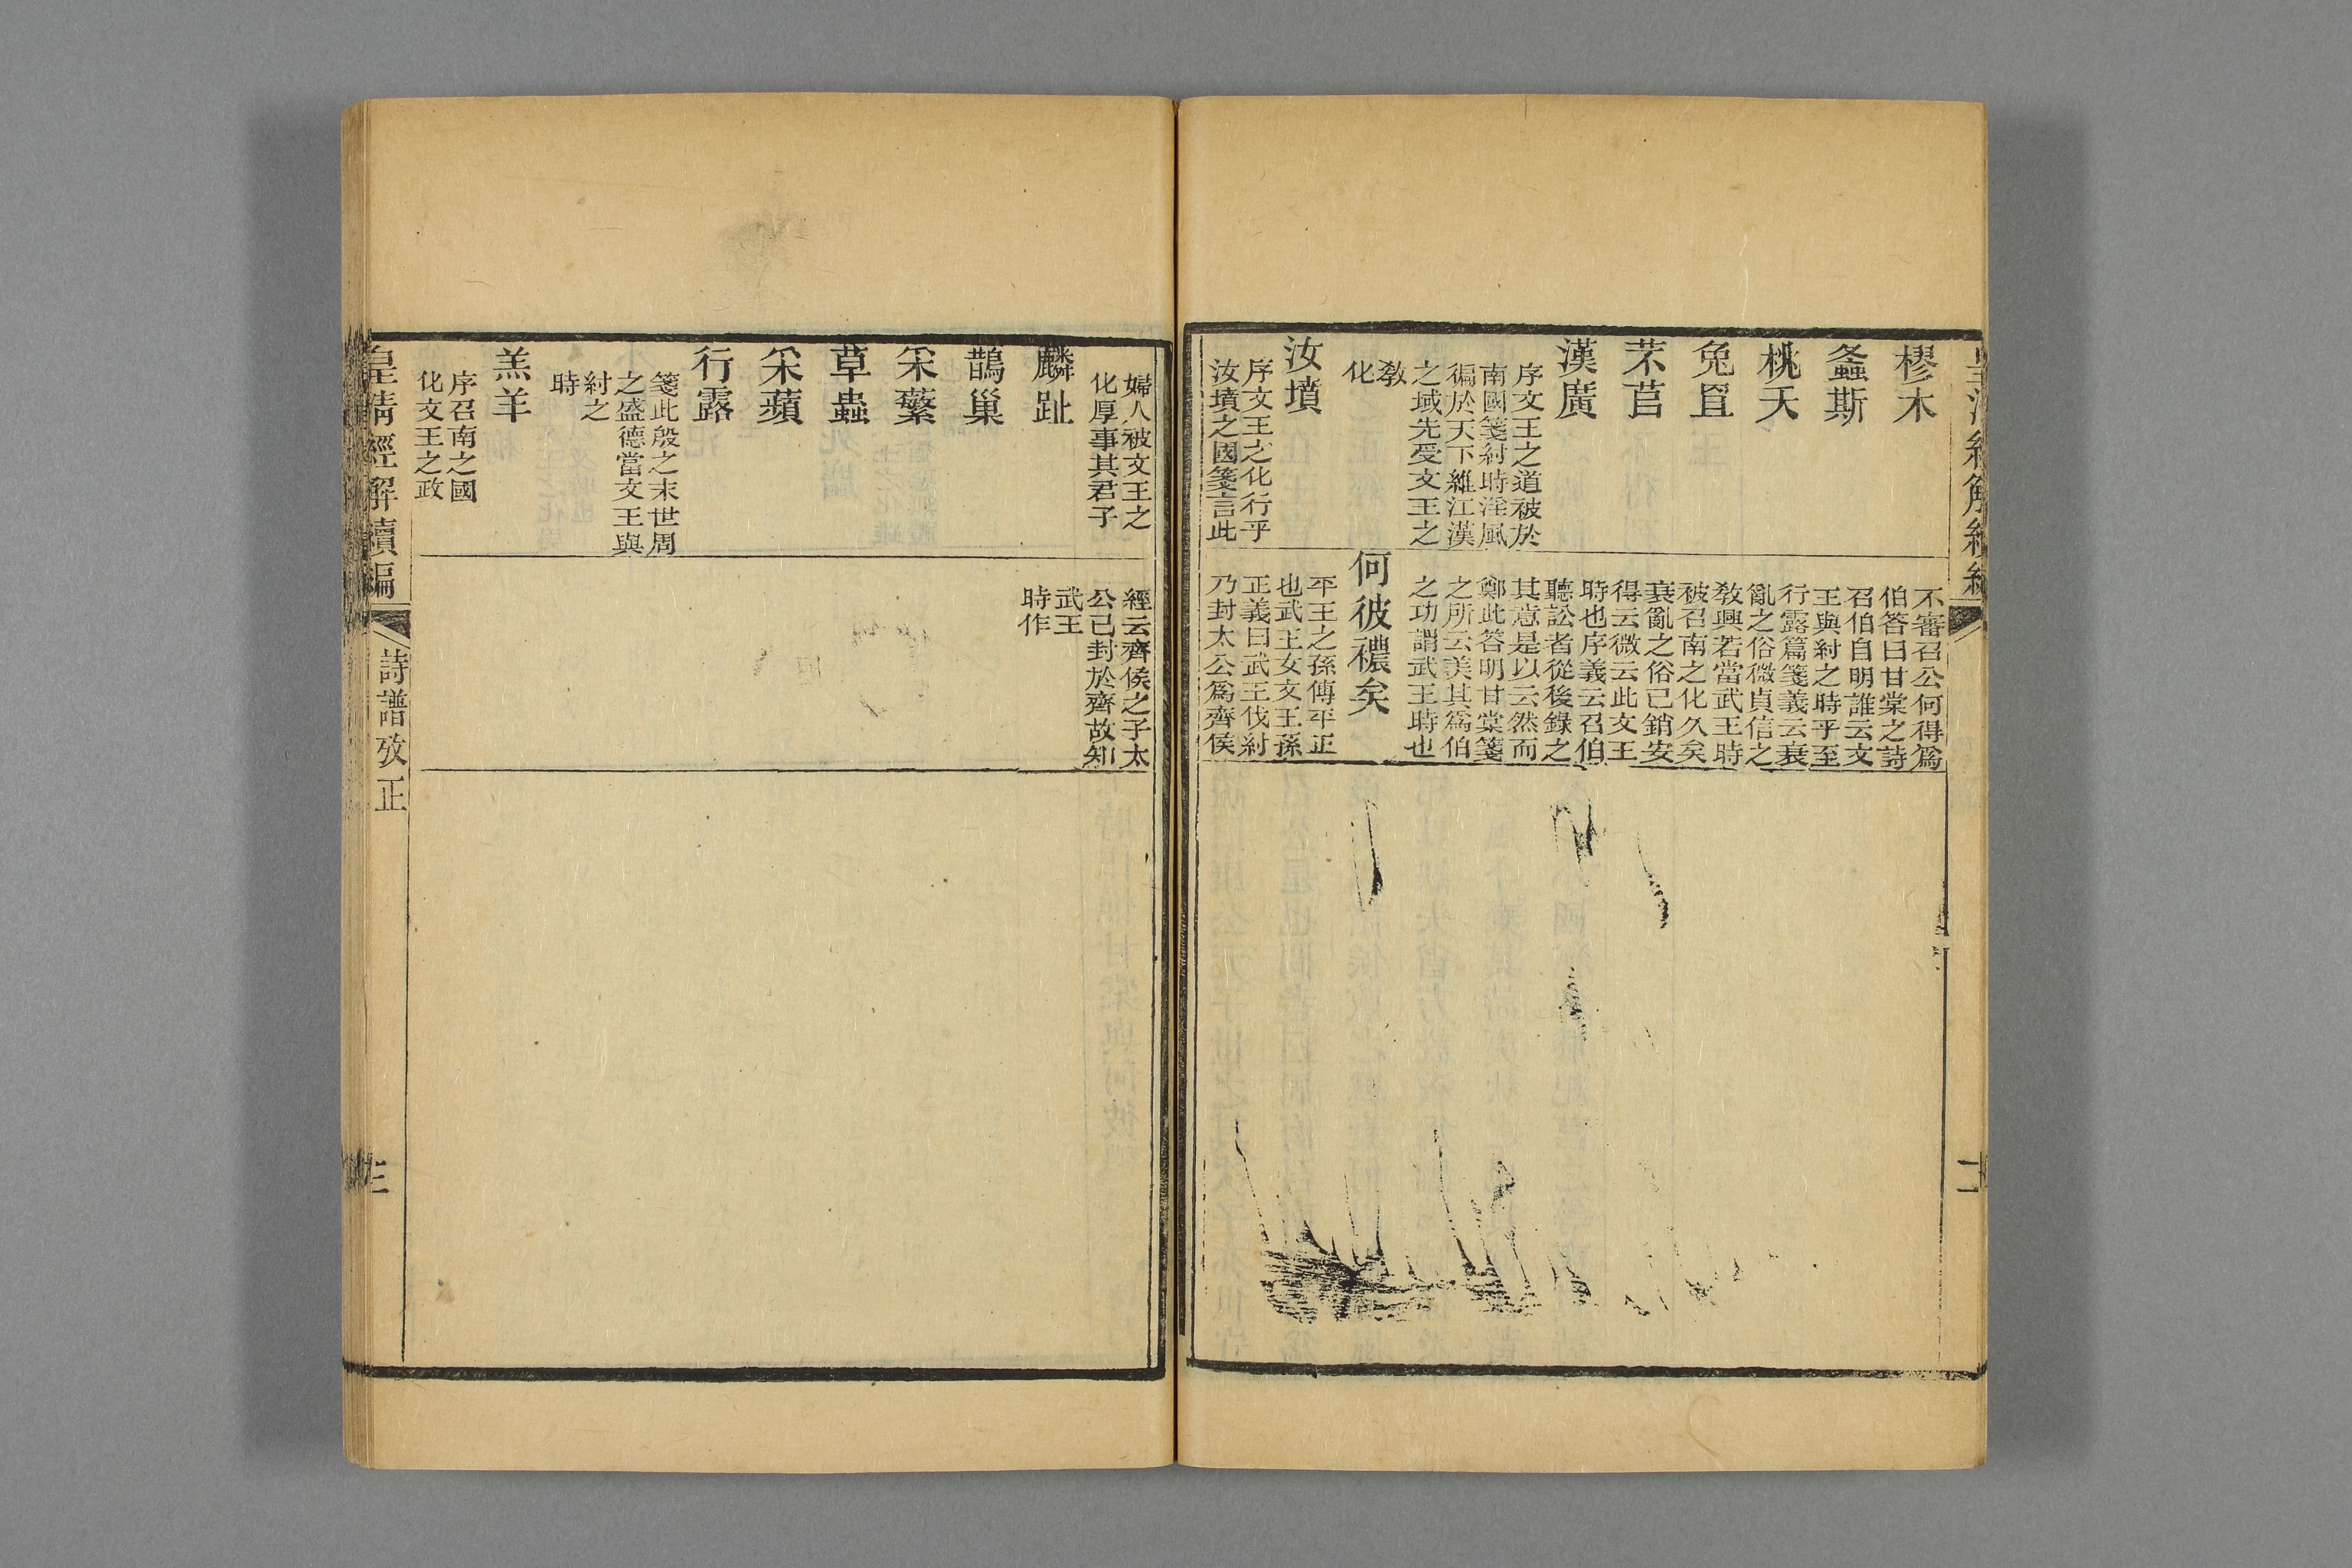 樛木
螽斯
桃夭
兔罝
芣苢
漢廣
序文王之道被於
南國箋紂時淫風
徧於天下維江漢
之域先受文王之
敎
化
汝墳
序文王之化行乎
汝墳之國箋言此
不審召公何得爲
伯答曰甘棠之詩
召伯自明誰云文
王與紂之時乎至
行露篇箋義云衰
亂之俗微貞信之
敎興若當武王時
被召南之化久矣
衰亂之俗已銷安
得云微云此文王
時也序義云召伯
聽訟者從後錄之
其意是以云然而
鄭此答明甘棠箋
之所云美其爲伯
之功謂武王時也
何彼襛矣
平王之孫傳平正
也武王女文王孫
正義曰武王伐紂
乃封太公爲齊侯
婦人被文王之
化厚事其君子
麟趾
鵲巢
采蘩
草蟲
采蘋
行露
箋此殷之末世周
之盛德當文王與
紂之
時
羔羊
序召南之國
化文王之政
經云齊侯之子太
公已封於齊故知
武王
時作
皇清經解續編
詩譜攷正